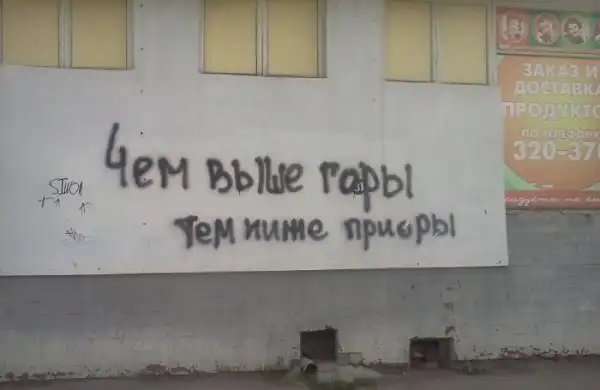 Чем выше гары
тем ниже приоры
ЗАКАЗ И
ДОСТАВКА
ПРОДУКТО
ПО ТЕЛЕФОНУ
320-370